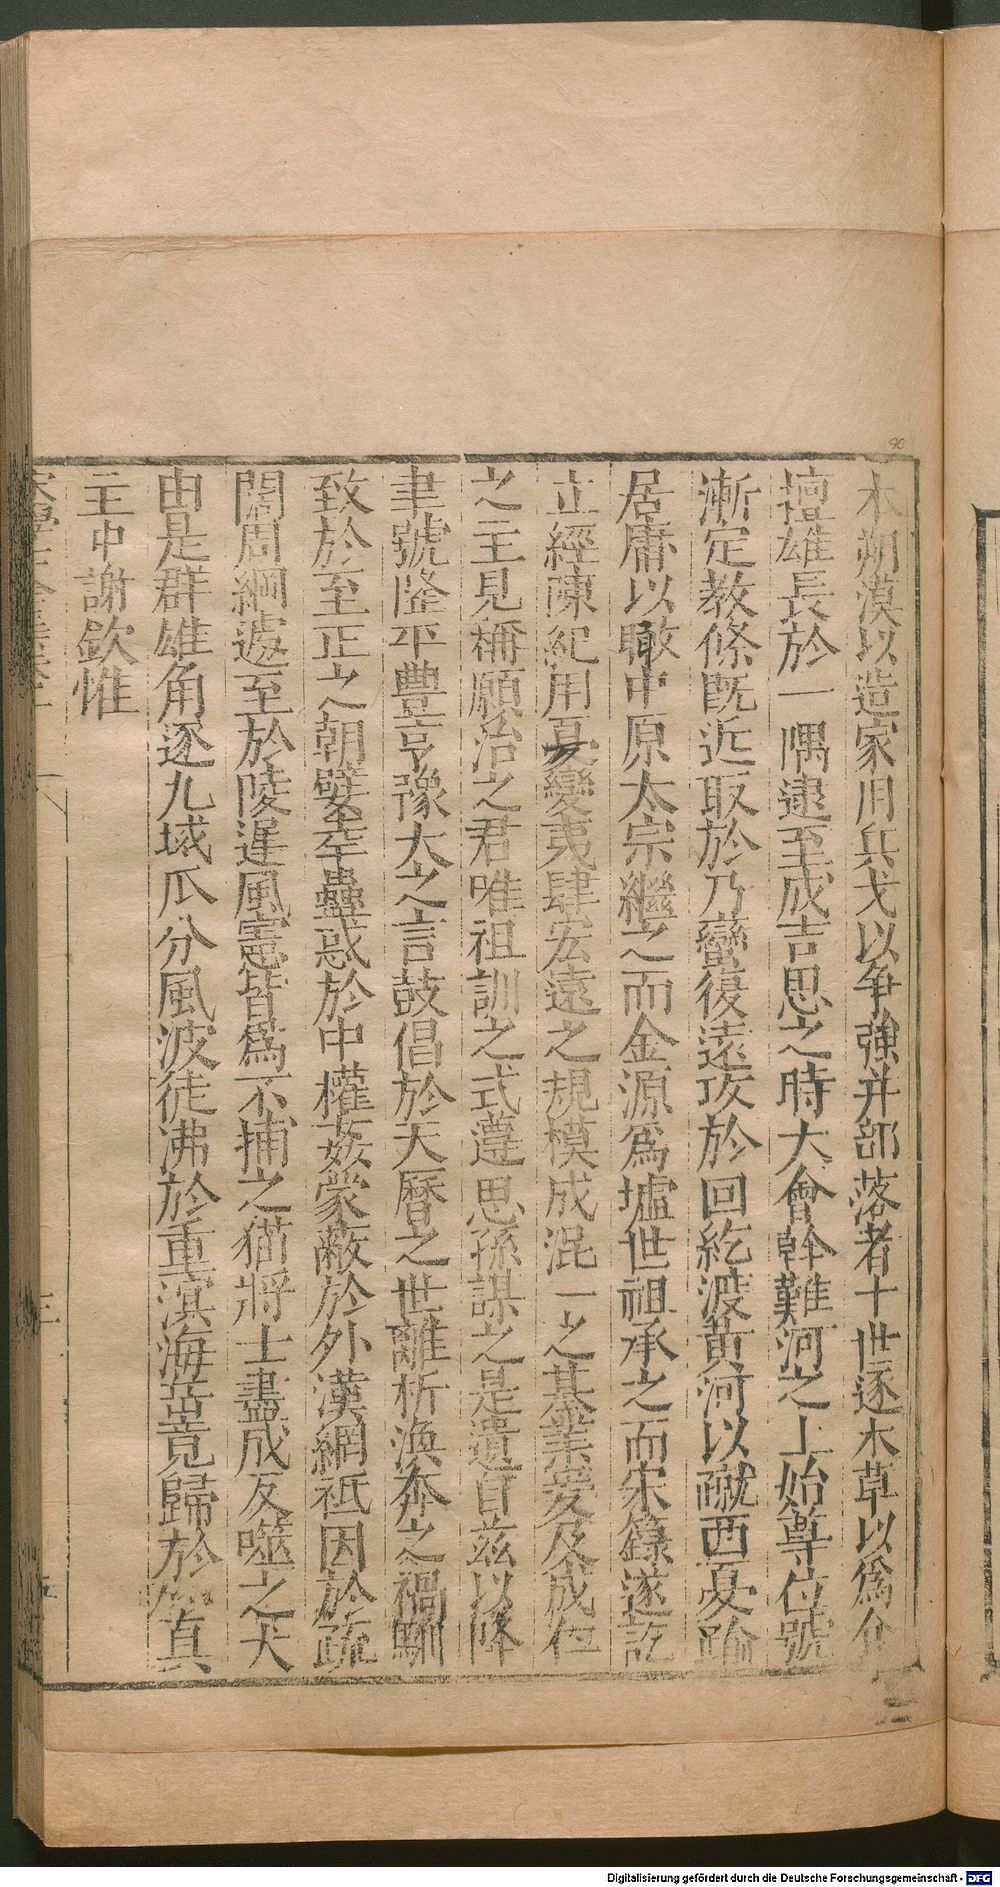 木朔漠以造家用兵戈以争強并部落者十世逐水草以爲企
擅雄長於一隅逮至成吉思之時大會幹難河之上始尊位號
漸定教條旣近取於乃蠻復遠攻於回紇渡黄河以蹴西夏踰
居庸以瞰中原太宗繼之而金源爲墟世祖承之而宋籙遂訖
立經陳紀用夏變夷肆宏遠之規模成混一之基業爰及成仁
之主見稱願治之君唯祖訓之式遵思孫謀之是遺自兹以降
聿號隆平豐亨豫大之言鼓倡於天曆之世離析渙奔之禍馴
致於至正之朝嬖幸蠱惑於中權姦蒙蔽於外漢網祇因於疏
闊周綱遽至於陵遲風憲皆爲不捕之猫將士盡成反噬之犬
由是群雄角逐九域瓜分風波徒沸於重溟海岳竟歸於真
主中謝欽惟
90
Digitalisierung gefördert durch die Deutsche Forschungsgemeinschaft - DFG